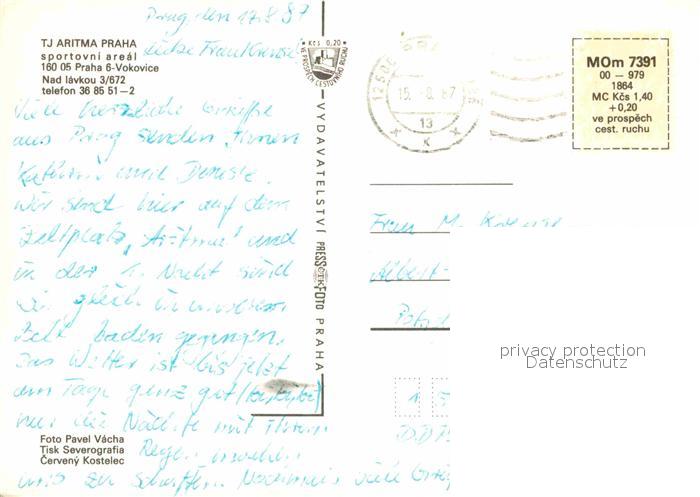 Prag, den 17.8.87
TJ ARITMA PRAHA
sportovní areál
160 05 Praha 6-Vokovice
Nad lávkou 3/672
telefon 36 85 51—2
Liebe Frau
Viele herzliche Grüße
aus Prag senden Ihnen
Kathrin und Denise.
Wir sind hier auf dem
Zeltplatz „Aritma" und
in der 1. Nacht sind
wir gleich in unserem
Zelt baden gegangen.
Das Wetter ist bis jetzt
am Tage ganz gut
nur die Nächte mit ihrem
Regen machen
uns zu schaffen. Nochmals viele Grüße
Foto Pavel Vácha
Tisk Severografia
Červený Kostelec
Kčs 0,20
VE PROSPĚCH CESTOVNÍHO RUCHU
VYDAVATELSTVÍ PRESSFOTO PRAHA
ČTK
15. -8. 87
13
MOm 7391
00 — 979
1864
MC Kčs 1,40
+0,20
ve prospěch
cest. ruchu
Frau M.
Albert-
1 5
DDR
privacy protection
Datenschutz